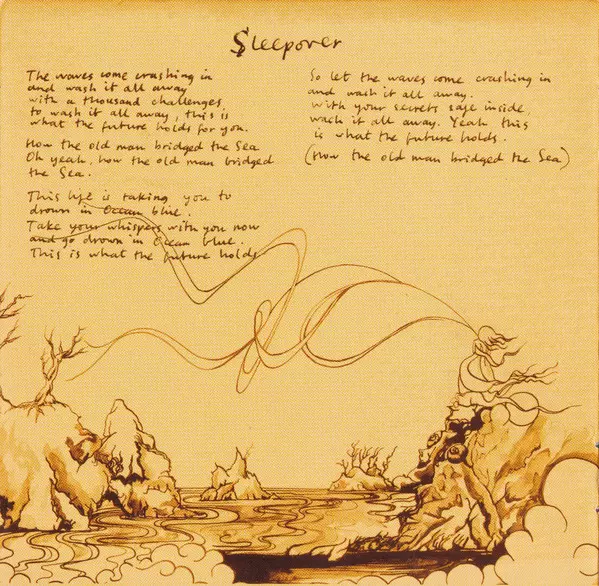 Sleepover
The waves come crashing in
and wash it all away
with a thousand challenges,
to wash it all away, this is
what the future holds for you.
How the old man bridged the Sea
Oh yeah, how the old man bridged
the Sea.
This life is taking you to
drown in Ocean blue.
Take your whispers with you now
and go drown in Ocean blue.
This is what the future holds
So let the waves come crashing in
and wash it all away.
With your secrets safe inside,
wash it all away. Yeah this
is what the future holds.
(How the old man bridged the Sea)